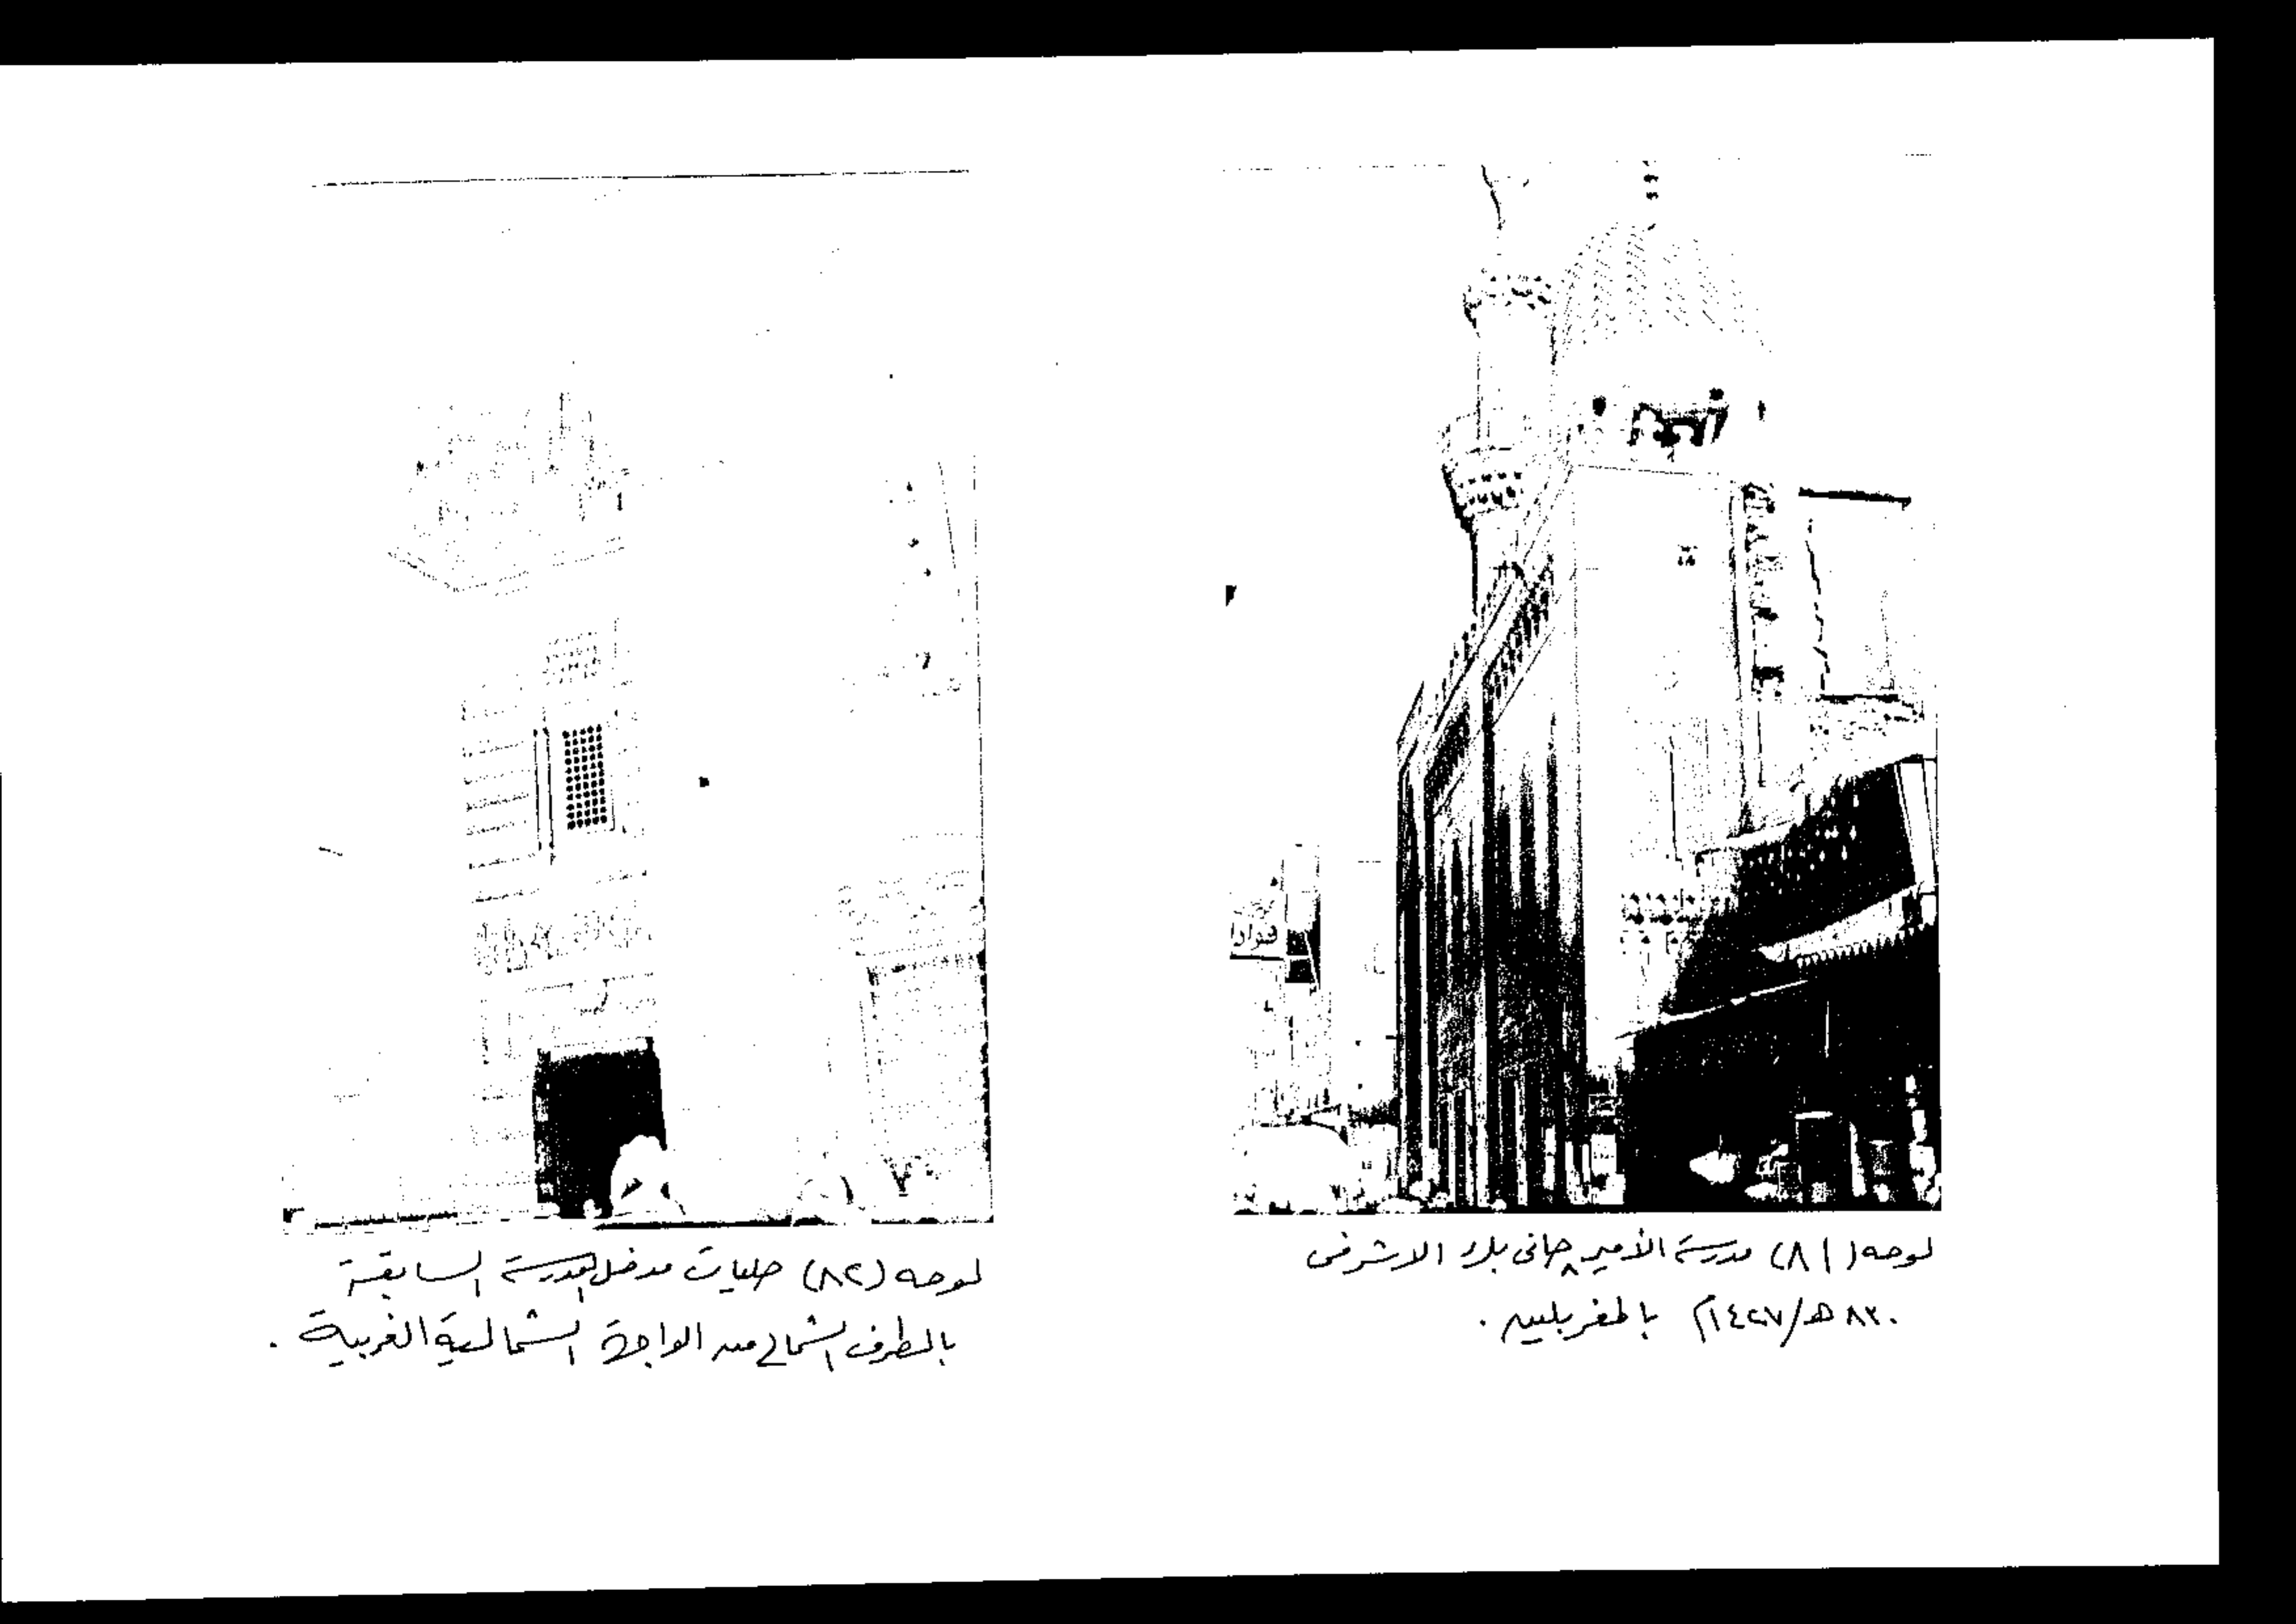 لوحه (٨١) مدرسة الأمير جانى بك الاشرفى
٨٣٠ هـ/١٤٢٧م بالمغربلين .
لوحه (٨٢) حليات مدخل المدرسة السابقة
بالطرف الشمالى من الواجهة الشمالية الغربية .